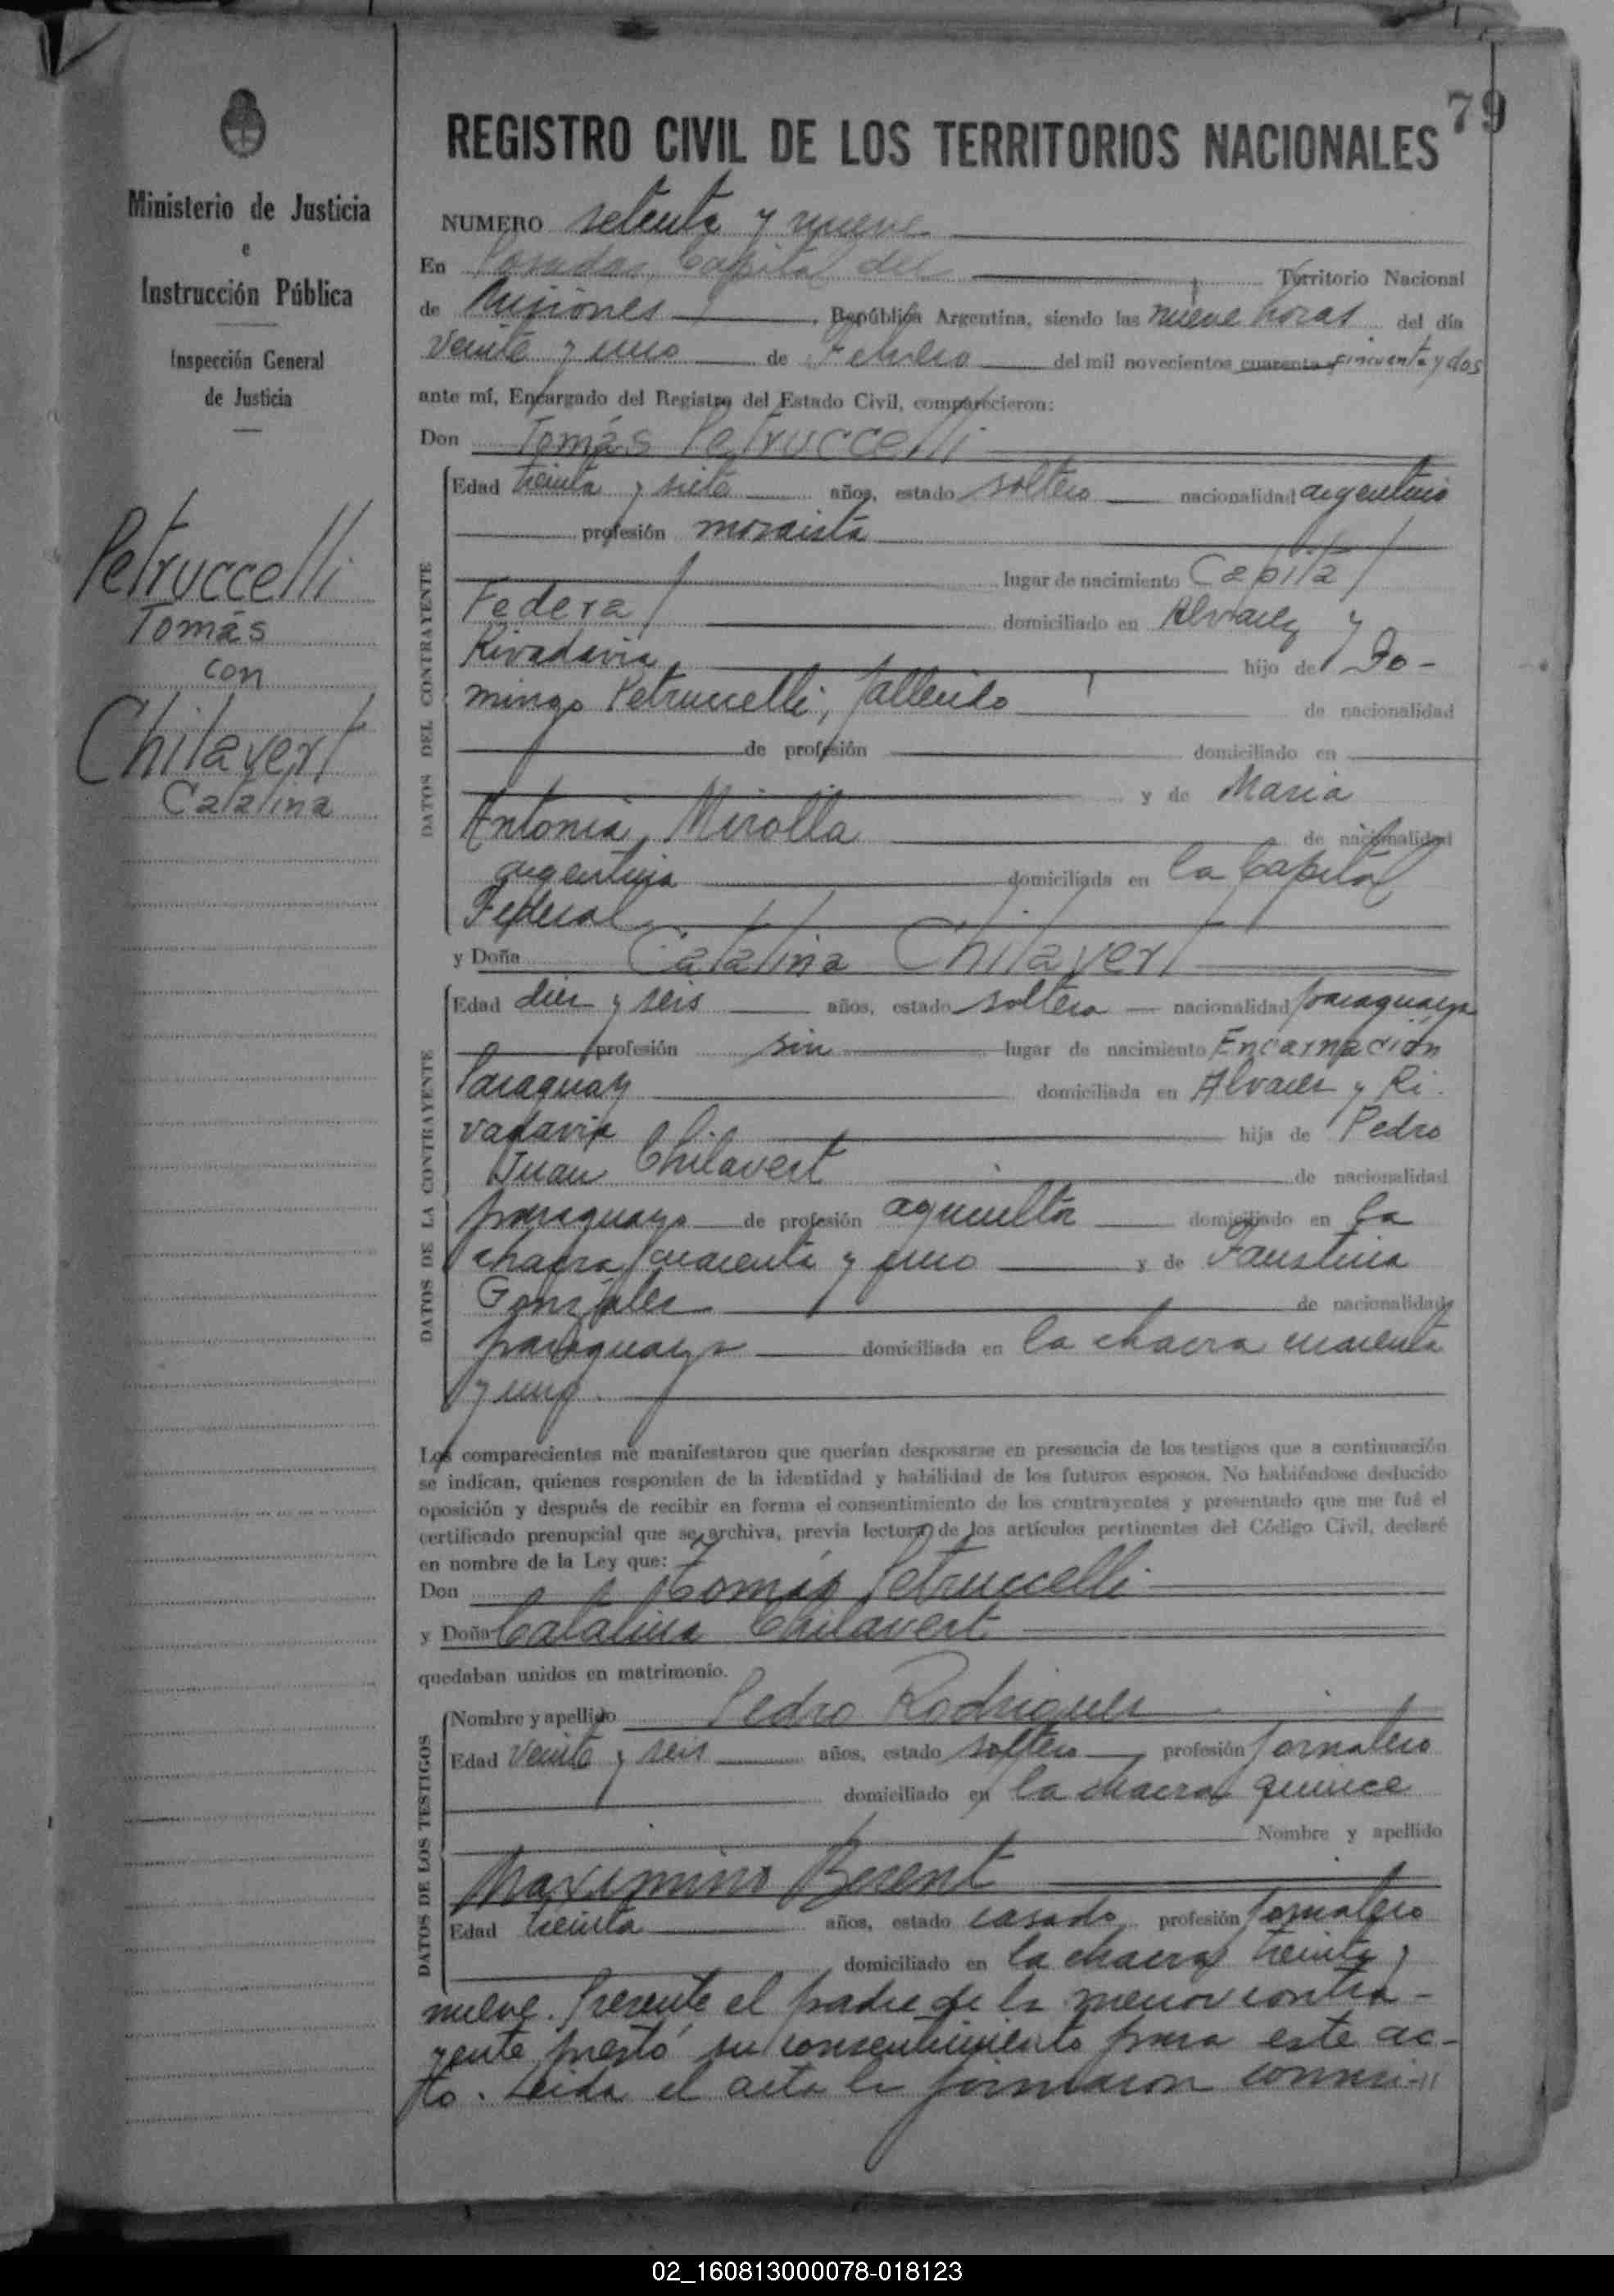 79
REGISTRO CIVIL DE LOS TERRITORIOS NACIONALES
Ministerio de Justicia
e
Instrucción Pública
Inspección General
de Justicia
Petruccelli
Tomás
con
Chilavert
Catalina
NUMERO setenta y nueve
En Posadas, Capital del Territorio Nacional
de Misiones, República Argentina, siendo las nueve horas del día
veinte y uno de Febrero del mil novecientos cuarenta cincuenta y dos
ante mí, Encargado del Registro del Estado Civil, comparecieron:
Don Tomás Petruccelli
DATOS DEL CONTRAYENTE
Edad treinta y siete años, estado soltero nacionalidad argentino
profesión mosaista
lugar de nacimiento Capital
Federal domiciliado en Alvarez y
Rivadavia hijo de Do-
mingo Petruccelli, fallecido de nacionalidad
de profesión domiciliado en
y de Maria
Antonia Mirolla de nacionalidad
argentina domiciliada en la Capital
Federal
y Doña Catalina Chilavert
DATOS DE LA CONTRAYENTE
Edad diez y seis años, estado soltera nacionalidad paraguaya
profesión sin lugar de nacimiento Encarnación
Paraguay domiciliada en Alvarez y Ri-
vadavia hija de Pedro
Juan Chilavert de nacionalidad
paraguayo de profesión agricultor domiciliado en la
chacra cuarenta y uno y de Faustina
González de nacionalidad
paraguaya domiciliada en la chacra cuarenta
y uno.
Los comparecientes me manifestaron que querían desposarse en presencia de los testigos que a continuación
se indican, quienes responden de la identidad y habilidad de los futuros esposos. No habiéndose deducido
oposición y después de recibir en forma el consentimiento de los contrayentes y presentado que me fué el
certificado prenupcial que se archiva, previa lectura de los artículos pertinentes del Código Civil, declaré
en nombre de la Ley que:
Don Tomás Petruccelli
y Doña Catalina Chilavert
quedaban unidos en matrimonio.
DATOS DE LOS TESTIGOS
Nombre y apellido Pedro Rodriguez
Edad veinte y seis años, estado soltero profesión jornalero
domiciliado en la chacra quince
Nombre y apellido
Maximino Berent
Edad treinta años, estado casado profesión jornalero
domiciliado en la chacra treinta y
nueve. Presente el padre de la menor contra-
yente prestó su consentimiento para este ac-
to. Leida el acta la firmaron conmi-"
02_160813000078-018123